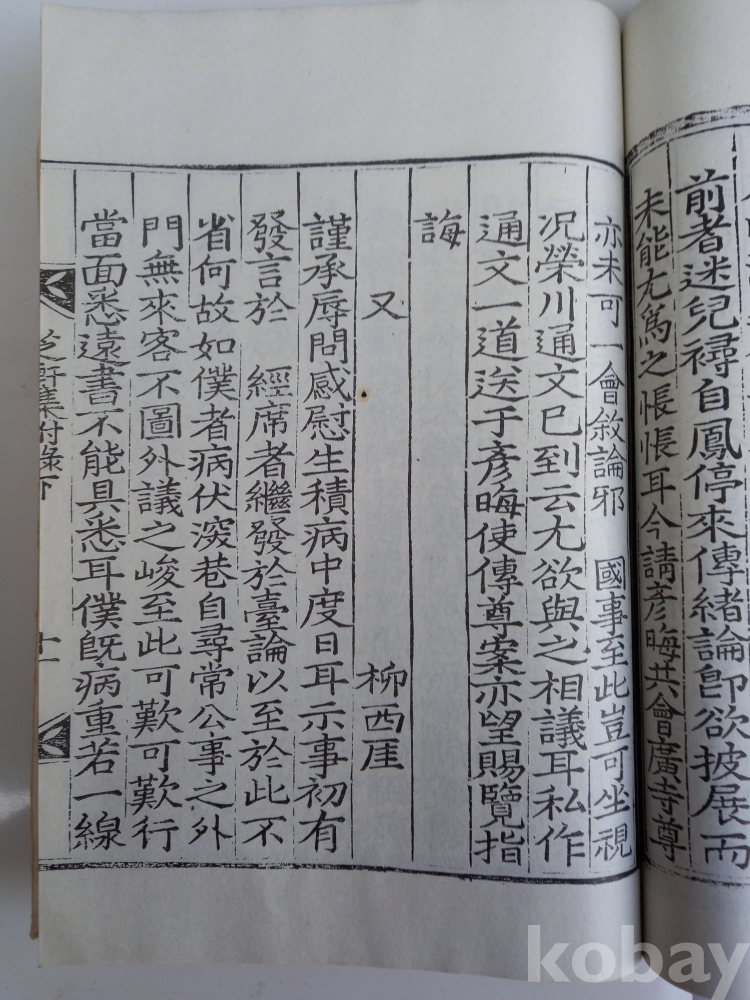 前者迷兒尋自鳳停來傳緒論卽欲披展而
未能尤爲之悵悵耳今請彥晦共會廣寺尊
亦未可一會敘論邪 國事至此豈可坐視
况榮川通文已到云尤欲與之相議耳私作
通文一道送于彥晦使傳尊案亦望賜覽指
誨
又 柳西厓
謹承辱問感慰生積病中度日耳示事初有
發言於 經席者繼發於臺論以至於此不
省何故如僕者病伏深巷自尋常公事之外
門無來客不圖外議之峻至此可歎可歎行
當面悉遠書不能具悉耳僕旣病重若一線
芝軒集附錄下 十一
kobay